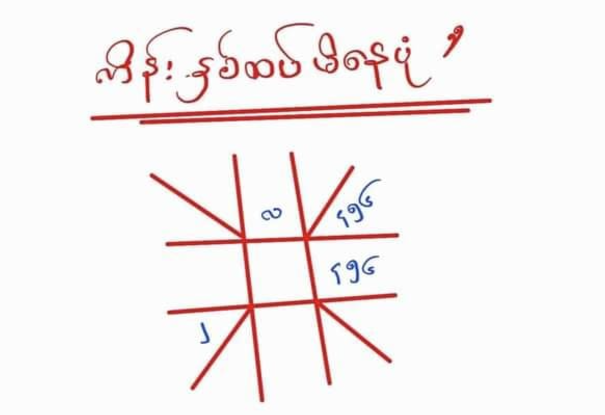 ကိန်းနှစ်ထပ်မိနေပုံ ၅
လ
၄၅၆
၄၅၆
၂